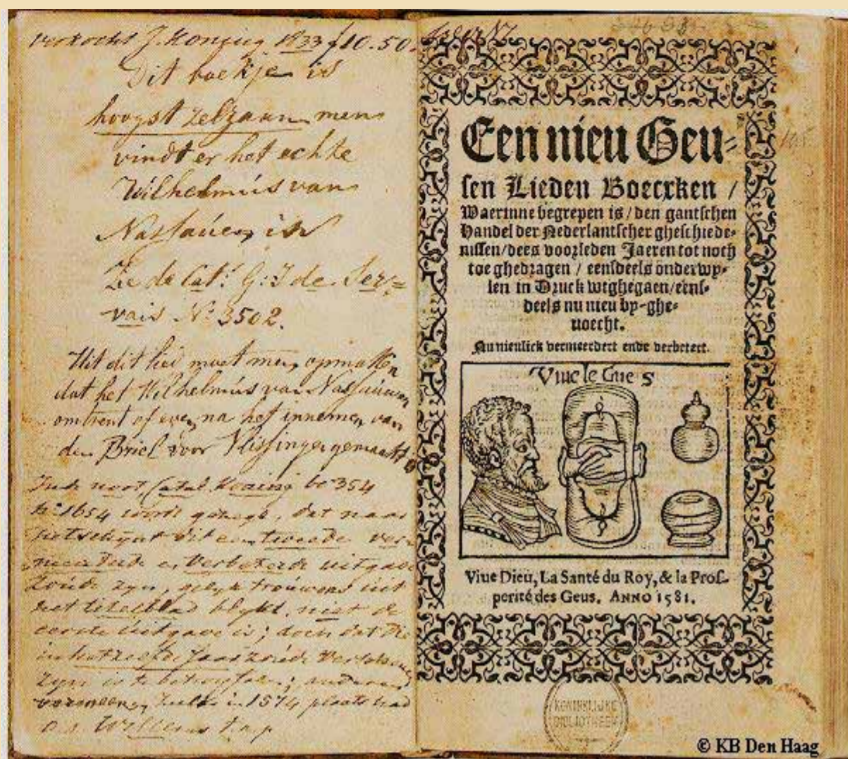 verkocht J. Koning 1833 f 10.50.
Dit boekje is
hoogst zelzaam men
vindt er het echte
Wilhelmús van
Nassaúen in
Zie de Cat: G: J de Ser=
vais N: 3502.
Uit dit lied moet men opmaken
dat het Wilhelmús van Nassaúwen
omtrent of even na het innemen van
den Briel voor Vlissingen gemaakt is
354
1654 wordt gezegd, dat naar
het schijnt dit een tweede ver
meerderde en verbeterde uitgave
zoude zyn, gelyk trouwens uit
het titelblad blykt, niet de
eerste uitgave is; doch dat die
in hetzelfde Jaar zoude
zyn is te betwyfelen; anderen
vermeenen zulks in 1574 plaats had
Willems
Een nieu Geu=
sen Lieden Boecxken /
Waerinne begrepen is / den gantschen
Handel der Nederlantscher gheschiede-
nissen / dees voorleden Jaeren tot noch
toe ghedragen / eensdeels onderwy-
len in Druck wtghegaen / eens-
deels nu nieu by-ghe-
uoecht.
Nu nieulick vermeerdert ende verbetert.
Viue le Gues
Viue Dieu, La Santé du Roy, & la Pros-
perité des Geus. ANNO 1581.
KONINKLIJKE
BIBLIOTHEEK
© KB Den Haag